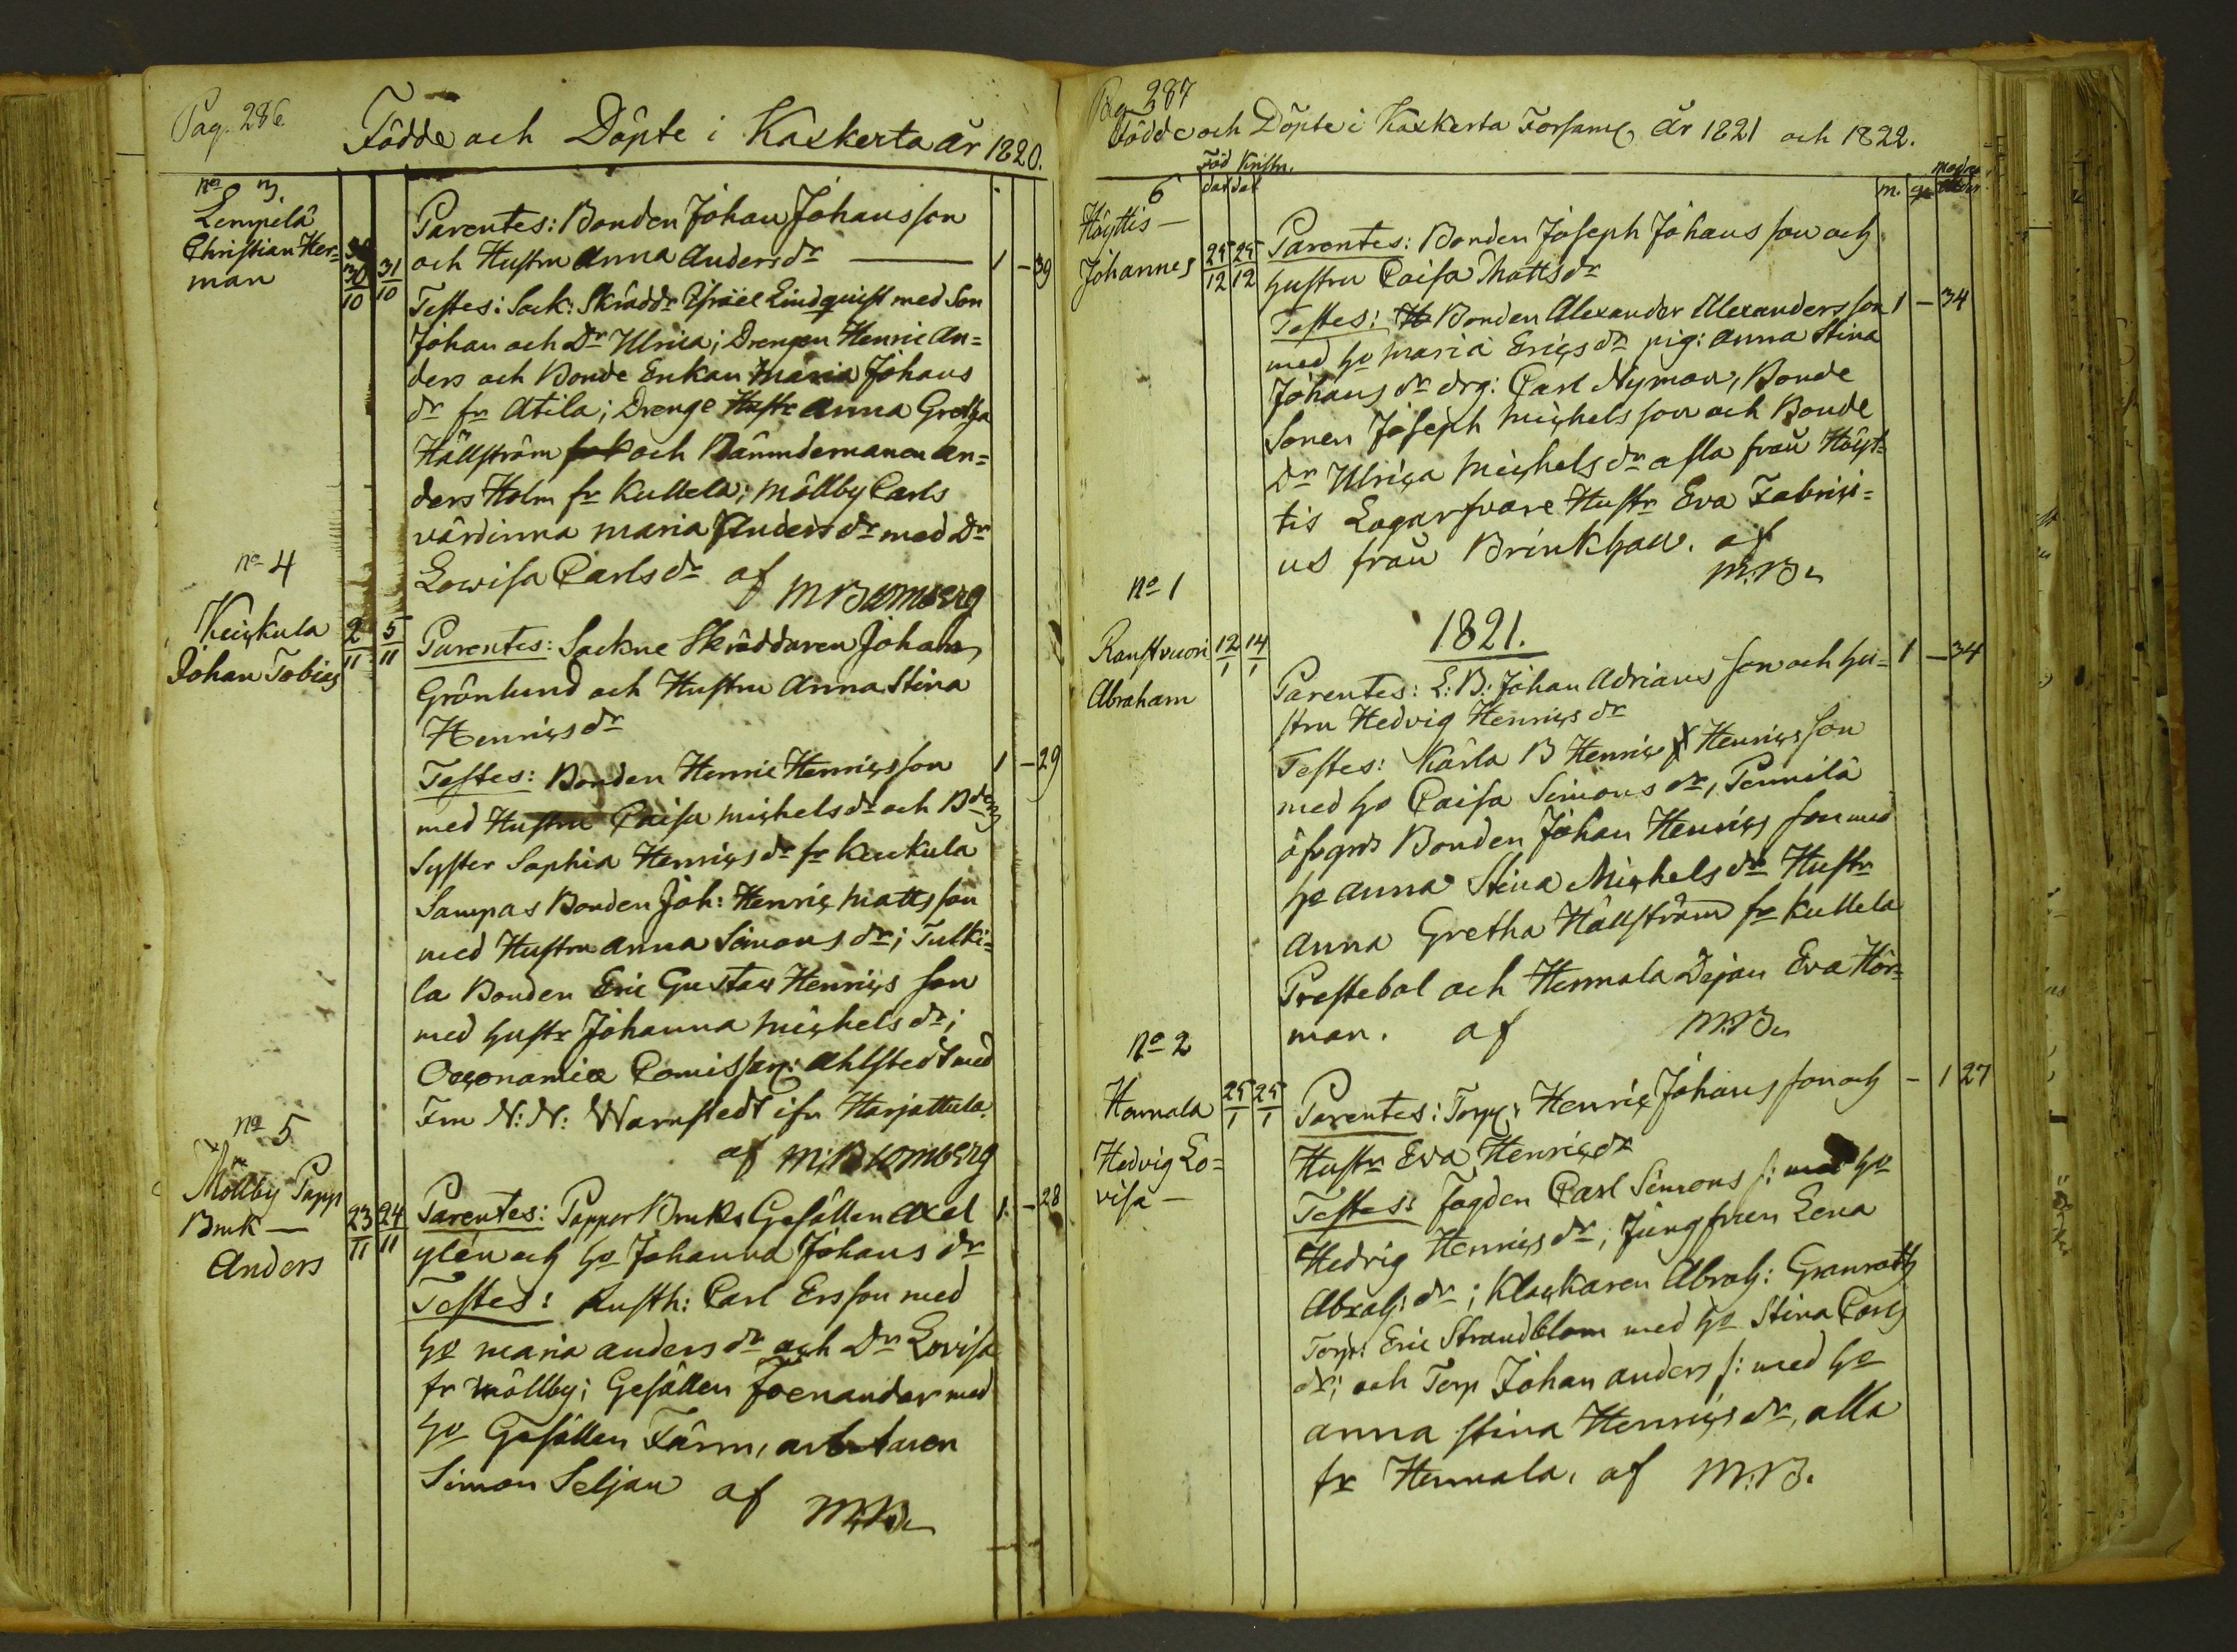 Pag. 286.
Födde och Döpte i Kaskerta år 1820.
no 3.
Lempelä
Christian Her=
man
30
10
31
10
Parentes: Bonden Johan Johansson
och Hustru Anna Anders dr — 1 - 39
Testes: Sock: Skräddr Israël Lindquist med Son
Johan och Dr Ulrica; Drengen Henric An=
ders och Bonde Enkan Maria Johans
dr fr Atila; Drenge Hustr Anna Gretha
Hällström och Nämndemannen An=
ders Holm fr Kullela; Möllby Carls
värdinna Maria Anders dr med Dr
Lowisa Carls dr af M Blomberg
no 4
Keiskula
Johan Tobias
2
11
5
11
Parentes: Sockne Skräddaren Johan
Grönlund och Hustru Anna Stina
Henrics dr
Testes: Bonden Henric Henricsson 1 - 29
med Hustru Caisa Michels dr och Bdens
Syster Sophia Henrics dr fr Keukula
Sampas Bonden Joh: Henric Mattsson
med Hustru Anna Simons dr; Tulki=
la Bonden Eric Gustaf Henrics son
med Hustr Johanna Michels dr;
Oeconomiæ Comissar: Ahlstedt med
Fru N: N: Warnstedt ifr Harjattula.
af M: Blomberg
no 5
Möllby Papp
Bruk —
Anders
23
11
24
11
Parentes: Pappers Bruks Gesällen Axel 1. - 28
ylén och ho Johanna Johans dr
Testes: Rusth: Carl Ersson med
ho Maria Anders dr och Dr Lovisa
fr Möllby; Gesällen Foenander med
ho Gesällen Färm, arbetaren
Simon Seljan af M:B.
Pag 287
Födde och Döpte i Kaskerta Församl. År 1821 och 1822.
Föd Kristn.
dat dat
m. q. modrens ålder
6
Höyttis —
Johannes
25
12
25
12
Parentes: Bonden Joseph Johans son och
hustru Caisa Matts dr
Testes: Bonden Alexander Alexandersson 1 - 34
med ho Maria Erics dr pig: Anna Stina
Johans dr drg: Carl Nyman, Bonde
Sonen Joseph Michelsson och Bonde
Dr Ulrica Michels dr alla från Höyt=
tis Lagarfvare Hustr Eva Fabrici=
us från Brinkhall. af
M:B.
no 1
1821.
Raustvuori
Abraham
12
1
14
1
Parentes: L: B: Johan Adrians son och hu= 1 - 34
stru Hedvig Henrics dr
Testes: Kärla B Henric Henricsson
med ho Caisa Simons dr, Pennilä
öfvgrds Bonden Johan Henrics son med
ho Anna Stina Michels dr Hustr
Anna Gretha Hällström fr Kullela
Prestebol och Hemmala Dejan Eva Hör=
man. af M:B.
no 2
Hemmala
Hedvig Lo=
visa —
25
1
25
1
Parentes: Torp: Henric Johans son och - 1 27
Hustr Eva Henrics dr
Testes: Fogden Carl Simons s: med ho
Hedvig Henrics dr; Jungfrun Lena
Abrah: dr; Klockaren Abrah: Granroth
Torp: Eric Strandblom med ho Stina Carls
dr; och Torp Johan Anders s: med ho
Anna Stina Henrics dr, alla
fr Hemmala. af M:B.